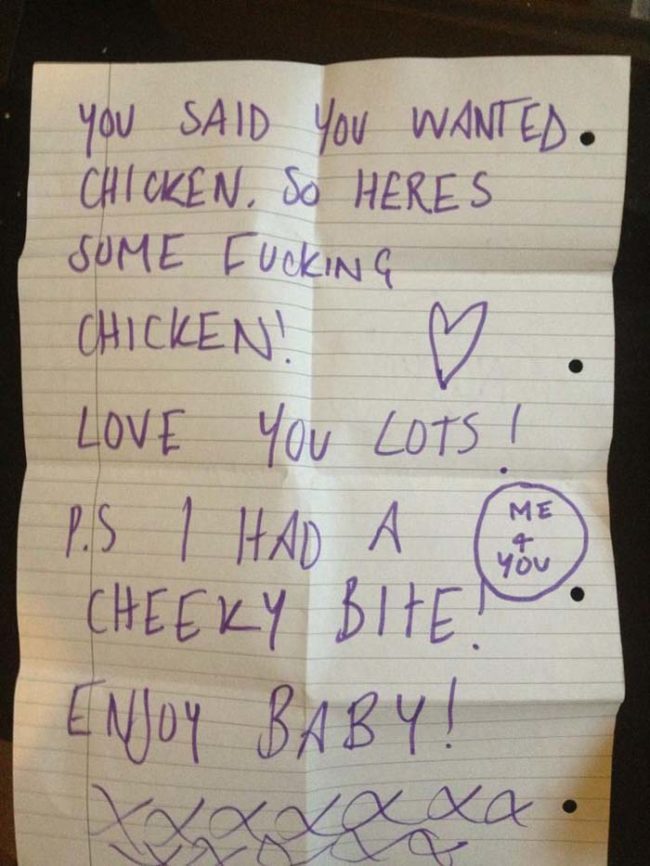 YOU SAID YOU WANTED
CHICKEN. SO HERES
SOME FUCKING
CHICKEN!
LOVE YOU LOTS!
P.S I HAD A
ME
&
YOU
CHEEKY BITE!
ENJOY BABY!
XXXXXXX
XXXXX